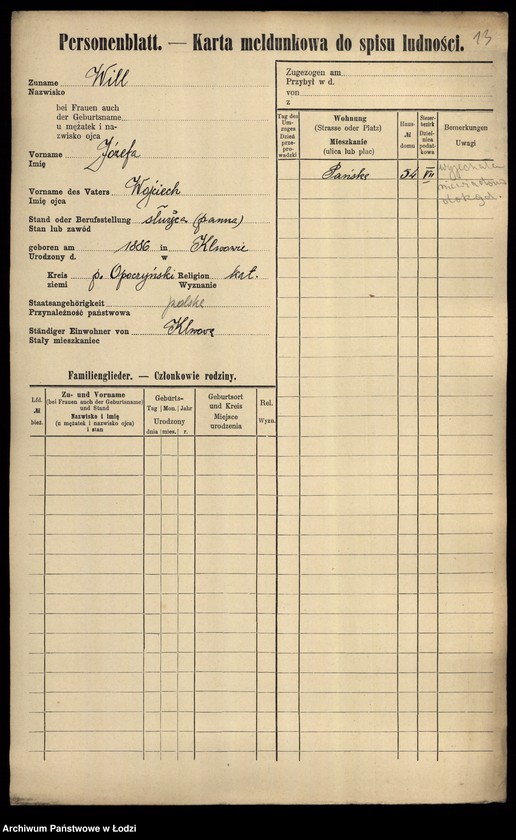 13
Personenblatt. — Karta meldunkowa do spisu ludności.
Zuname Will
Nazwisko
bei Frauen auch
der Geburtsname
u mężatek i na-
zwisko ojca
Vorname Józefa
Imię
Vorname des Vaters Wojciech
Imię ojca
Stand oder Berufsstellung służąca (panna)
Stan lub zawód
geboren am 1886 in Klwowie
Urodzony d. w
Kreis p. Opoczyński Religion kat.
ziemi Wyznanie
Staatsangehörigkeit polska
Przynależność państwowa
Ständiger Einwohner von Klwowa
Stały mieszkaniec
Familienglieder. — Członkowie rodziny.
Lfd.
№
bież.
Zu- und Vorname
(bei Frauen auch der Geburtsname)
und Stand
Nazwisko i imię
(u mężatek i nazwisko ojca)
i stan
Geburts-
Tag Mon. Jahr
Urodzony
dnia mies. r.
Geburtsort
und Kreis
Miejsce
urodzenia
Rel.
Wyzn.
Zugezogen am
Przybył w d.
von
z
Tag des
Um-
zuges
Dzień
prze-
prowadzki
Wohnung
(Strasse oder Platz)
Mieszkanie
(ulica lub plac)
Haus-
№
domu
Steuer-
bezirk
Dziel-
nica
podat-
kowa
Bemerkungen
Uwagi
Pańska 54 VII wyjechała
niewiadomo
dokąd.
Archiwum Państwowe w Łodzi